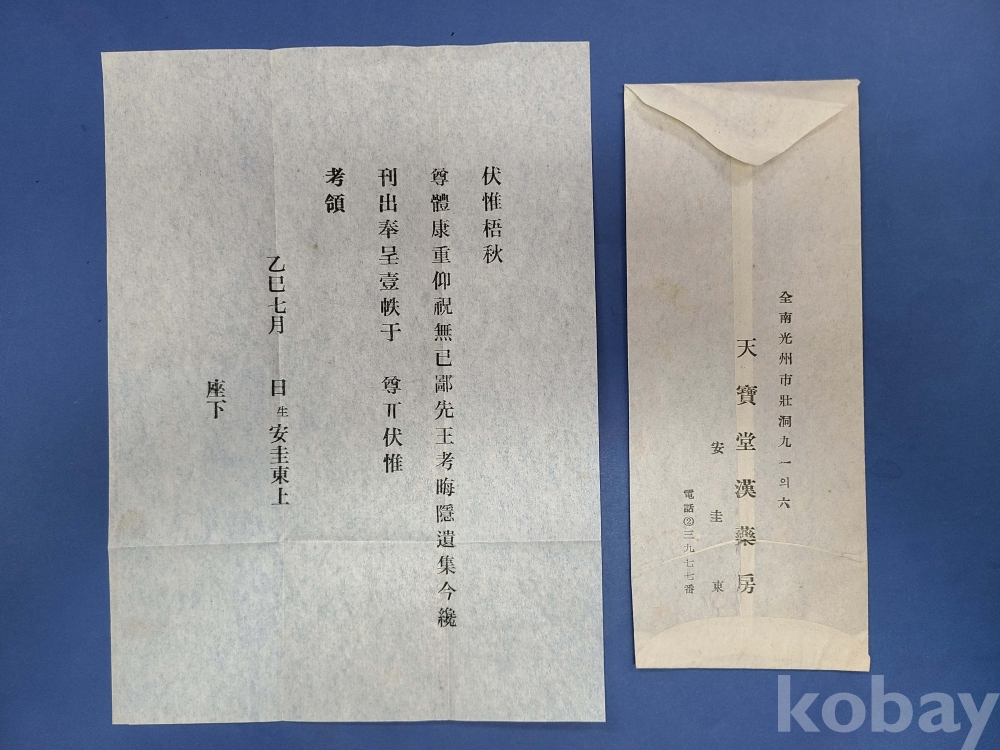 伏惟梧秋
尊體康重仰祝無已鄙先王考晦隱遺集今纔
刊出奉呈壹帙于 尊丌伏惟
考領
乙巳七月 日 生 安圭東上
座下
全南光州市壯洞九一의六
天寶堂漢藥房
安圭東
電話②三九七七番
kobay